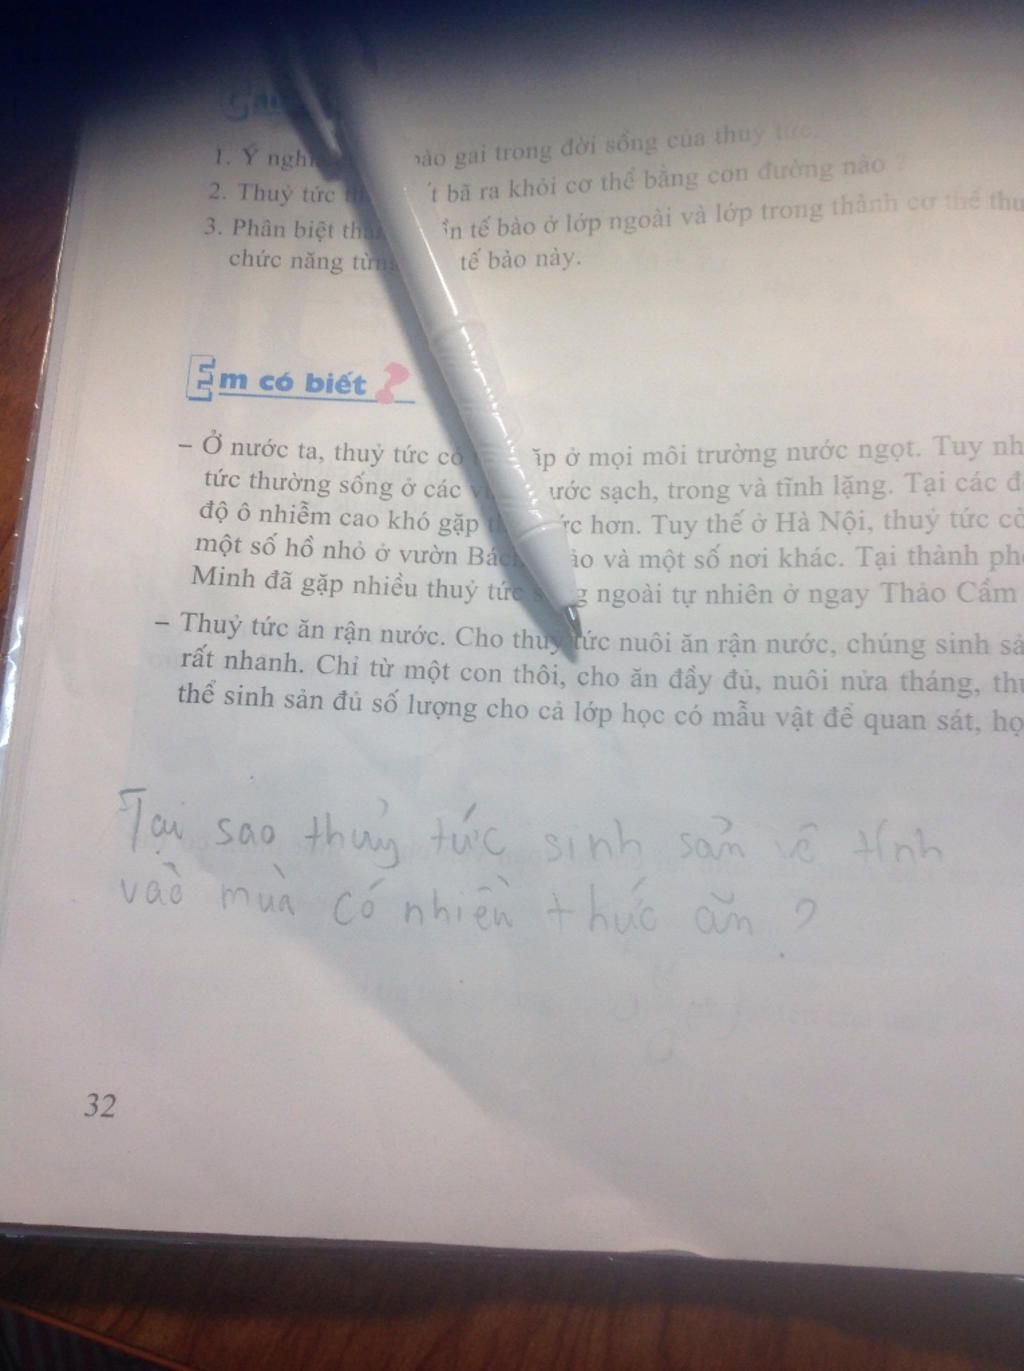 1. Ý trong đời sống của thuỷ tức.
2. Thuỷ tức bã ra khỏi cơ thể bằng con đường nào ?
3. Phân biệt tế bào ở lớp ngoài và lớp trong thành cơ thể
chức năng từng tế bào này.
Em có biết ?
– Ở nước ta, thuỷ tức có ở mọi môi trường nước ngọt. Tuy
tức thường sống ở các sạch, trong và tĩnh lặng. Tại các
độ ô nhiễm cao khó gặp hơn. Tuy thế ở Hà Nội, thuỷ tức
một số hồ nhỏ ở vườn và một số nơi khác. Tại thành
Minh đã gặp nhiều thuỷ tức ngoài tự nhiên ở ngay Thảo Cầm
– Thuỷ tức ăn rận nước. Cho thuỷ tức nuôi ăn rận nước, chúng sinh
rất nhanh. Chỉ từ một con thôi, cho ăn đầy đủ, nuôi nửa tháng,
thể sinh sản đủ số lượng cho cả lớp học có mẫu vật để quan sát,
Tại sao thủy tức sinh sản vô tính
vào mùa có nhiều thức ăn ?
32